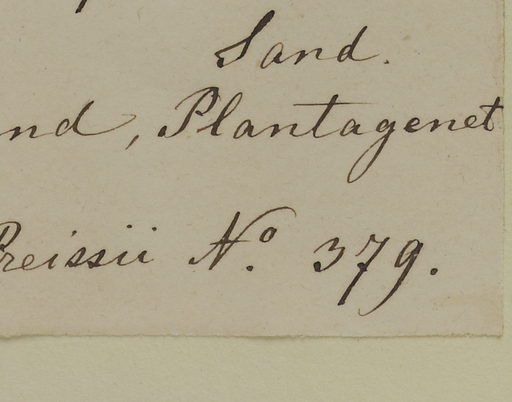 Sand.
nd, Plantagenet
Preissii No. 379.